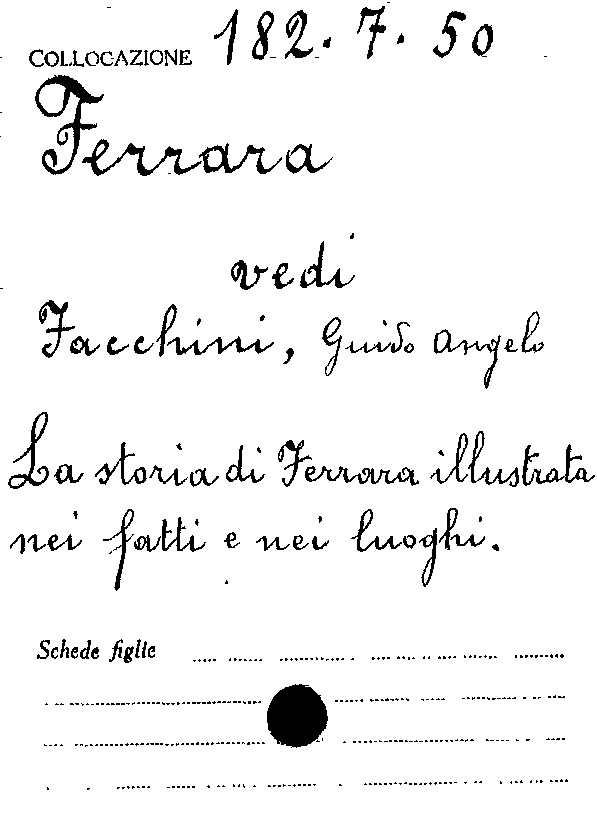 COLLOCAZIONE 182.7.50
Ferrara
vedi
Facchini, Guido Angelo
La storia di Ferrara illustrata
nei fatti e nei luoghi.
Schede figlie